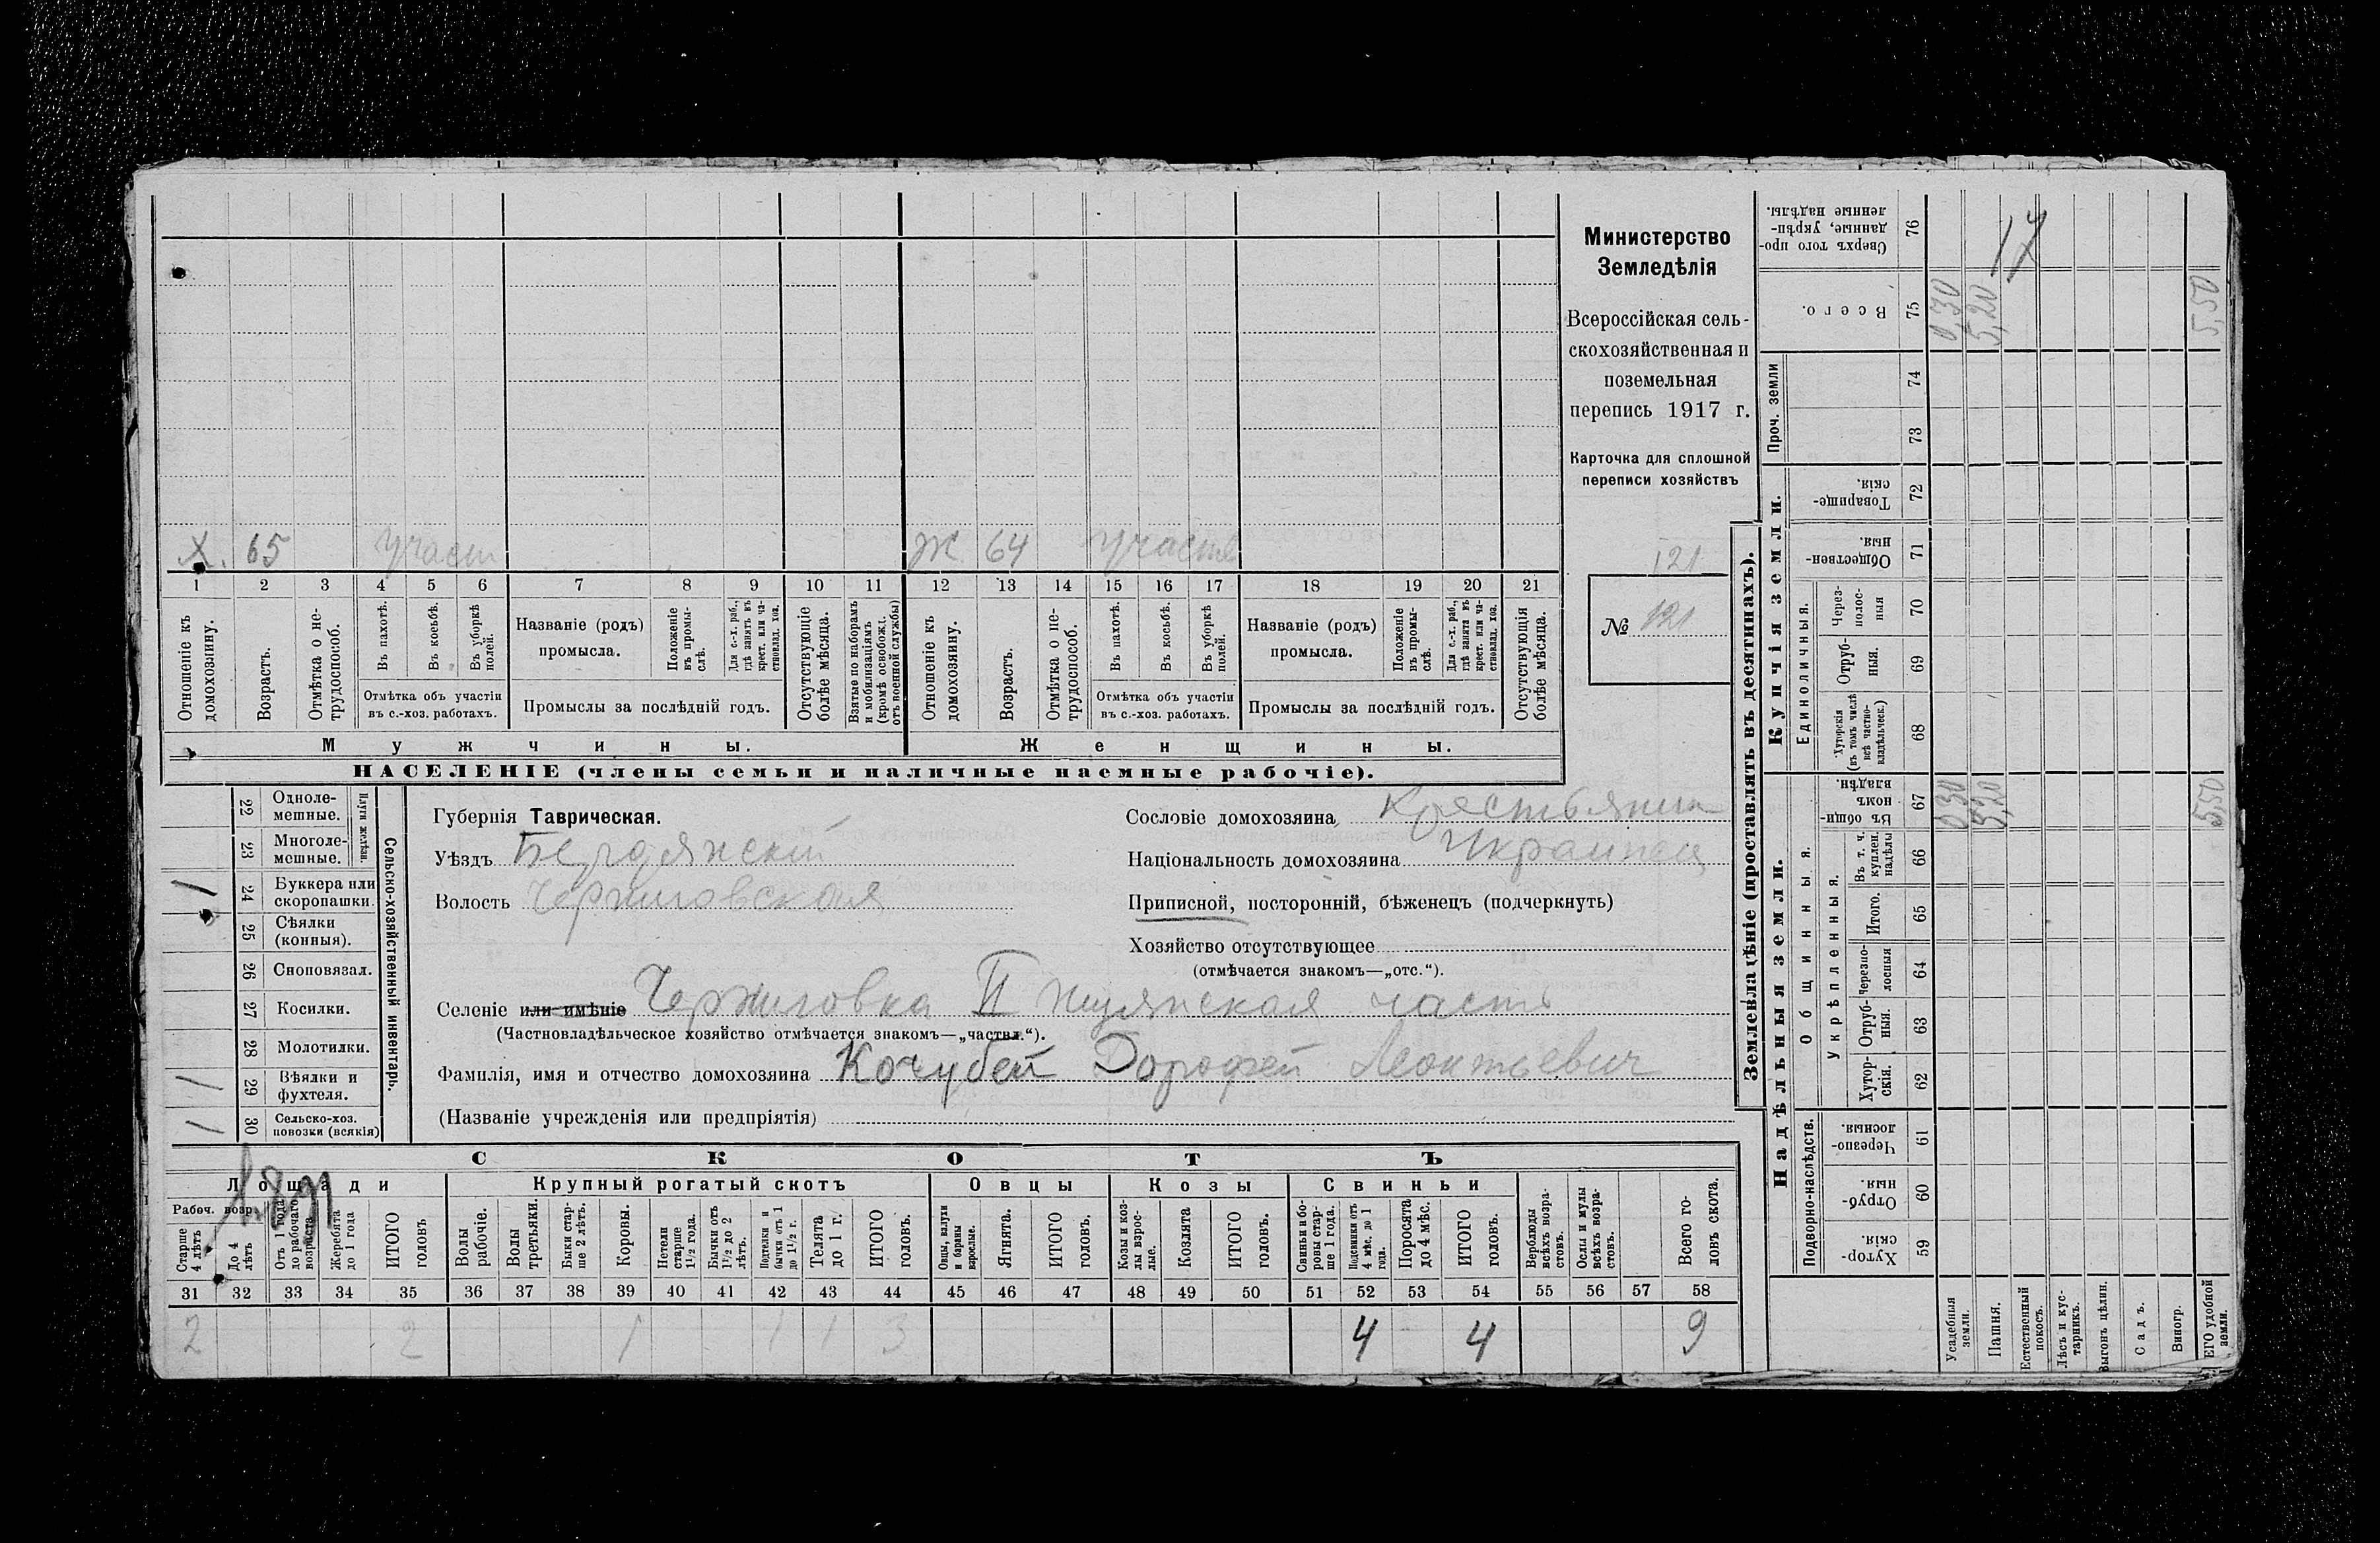 Министерство
Земледѣлія
Всероссійская сель-
скохозяйственная и
поземельная
перепись 1917 г.
Карточка для сплошной
переписи хозяйствъ
121
№ 121
Х. 65 участ Ж 64 участв
1 2 3 4 5 6 7 8 9 10 11 12 13 14 15 16 17 18 19 20 21
Отношеніе къ домохозяину.
Возрастъ.
Отмѣтка о не-трудоспособ.
Въ пахотѣ.
Въ косьбѣ.
Въ уборкѣ полей.
Отмѣтка объ участіи
въ с.-хоз. работахъ.
Названіе (родъ)
промысла.
Положеніе въ промы-слѣ.
Для с.-х. раб., гдѣ занятъ въ крест. или ча-стновлад. хоз.
Промыслы за послѣдній годъ.
Отсутствующіе болѣе мѣсяца.
Взятые по наборамъ и мобилизаціямъ (кромѣ освобожд. отъ военной службы)
Отношеніе къ домохозяину.
Возрастъ.
Отмѣтка о не-трудоспособ.
Въ пахотѣ.
Въ косьбѣ.
Въ уборкѣ полей.
Отмѣтка объ участіи
въ с.-хоз. работахъ.
Названіе (родъ)
промысла.
Положеніе въ промы-слѣ.
Для с.-х. раб., гдѣ занята въ крест. или ча-стновлад. хоз.
Промыслы за послѣдній годъ.
Отсутствующія болѣе мѣсяца.
Мужчины. Женщины.
НАСЕЛЕНІЕ (члены семьи и наличные наемные рабочіе).
Сельско-хозяйственный инвентарь.
Плуги желѣзн.
22 Одноле-мешные.
23 Многоле-мешные.
1 24 Буккера или скоропашки.
25 Сѣялки (конныя).
26 Сноповязал.
27 Косилки.
28 Молотилки.
1 29 Вѣялки и фухтеля.
1 30 Сельско-хоз. повозки (всякія)
Губернія Таврическая.
Уѣздъ Бердянский
Волость Черниговская
Сословіе домохозяина Крестьянин
Національность домохозяина Украинец
Приписной, посторонній, бѣженецъ (подчеркнуть)
Хозяйство отсутствующее
(отмѣчается знакомъ—„отс.“).
Селеніе или имѣніе Черниговка II часть
(Частновладѣльческое хозяйство отмѣчается знакомъ—„частвл.“).
Фамилія, имя и отчество домохозяина Кочубей Дорофей Леонтьевич
(Названіе учрежденія или предпріятія)
СКОТЪ
Лошади Крупный рогатый скотъ Овцы Козы Свиньи
Рабоч. возр.
Старше 4 лѣтъ
До 4 лѣтъ
Отъ 1 года до рабочаго возраста
Жеребята до 1 года
ИТОГО головъ
Волы рабочіе.
Волы третьяки.
Быки стар-ше 2 лѣтъ.
Коровы.
Нетели старше 1 1/2 года.
Бычки отъ 1 1/2 до 2 лѣтъ.
Подтелки и бычки отъ 1 до 1 1/2 г.
Телята до 1 г.
ИТОГО головъ.
Овцы, валухи и бараны взрослые.
Ягнята.
ИТОГО головъ.
Козы и коз-лы взрос-лые.
Козлята
ИТОГО головъ.
Свиньи и бо-ровы стар-ше 1 года.
Подсвинки отъ 4 мѣс. до 1 года.
Поросята до 4 мѣс.
ИТОГО головъ.
Верблюды всѣхъ возра-стовъ.
Ослы и мулы всѣхъ возра-стовъ.
Всего го-ловъ скота.
31 32 33 34 35 36 37 38 39 40 41 42 43 44 45 46 47 48 49 50 51 52 53 54 55 56 57 58
2 2 1 1 1 3 4 4 9
Землевладѣніе (проставлять въ десятинахъ).
Надѣльныя земли. Купчія земли. Проч. земли
Подворно-наслѣдств.
Общинныя.
Укрѣпленныя.
Единоличныя.
Хутор-скія. 59
Отруб-ныя. 60
Черезпо-лосныя. 61
Хутор-скія. 62
Отруб-ныя. 63
Черезпо-лосныя 64
Итого. 65
Въ т. ч. куплен. надѣлы 66
Въ общин-номъ владѣн. 67
Хуторскія (въ томъ числѣ всѣ частно-владѣльческ.) 68
Отруб-ныя. 69
Через-полос-ныя 70
Обществен-ныя. 71
Товарище-скія. 72
73
74
Всего. 75
Сверхъ того про-данные, укрѣп-ленные надѣлы. 76
Усадебныя земли. 0,30 0,30
Пашня. 5,20 5,20
Естественный покосъ.
Лѣсъ и кус-тарникъ.
Выгонъ цѣлин.
Садъ.
Виногр.
ЕГО удобной земли. 5,50 5,50
17